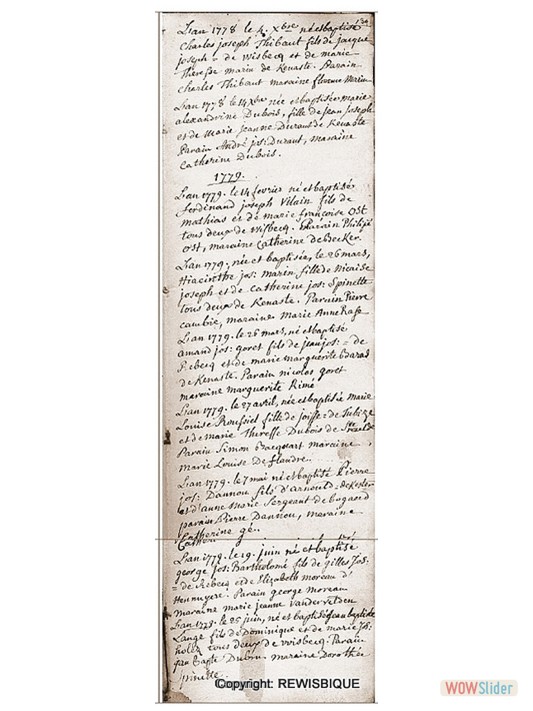 L'an 1778 le 4. xbre né et baptisé
134
Charles joseph Thibaut fils de jacque
joseph = de Wisbecq et de marie
Theresse marin de Kenaste. Parain
Charles Thibaut maraine
L'an 1778 le 14 xbre née et baptisée marie
alexandrine Dubois, fille de jean joseph
et de Marie jeanne Durant de Kenaste
Parain André jos: Durant, maraine
Catherine Dubois.
1779.
L'an 1779. le 14 fevrier né et baptisé
ferdinand joseph Vilain fils de
mathias et de marie françoise Ost
tous deux de Wisbecq. Parain Philipe
Ost, maraine Catherine de Becker.
L'an 1779. née et baptisée, le 26 mars,
Hiacinthe jos: marin fille de Nicaise
joseph et de Catherine jos: Spinette
tous deux de Kenaste. Parain Pierre
cambie, maraine Marie Anne
L'an 1779. le 26 mars, né et baptisé
amand jos: goret fils de jean jos: = de
Rebecq et de marie marguerite
de Kenaste. Parain nicolas goret
maraine marguerite Rime
L'an 1779. le 27 avril, née et baptisée marie
Louise Roussiel fille de
et de marie Theresse Dubois de
Parain Simon Bacquart maraine
marie Louise De flandre.
L'an 1779. le 7 mai né et baptisé Pierre
jos: Dannou fils d'arnould =
et d'anne Marie Sergeant de
parain Pierre Dannou, maraine
Catherine
L'an 1779. le 19. juin né et baptisé
george jos: Bartholomé fils de gilles jos:
= de Rebecq et de Elizabeth moreau d'
Hennuyere. Parain george moreau
maraine marie jeanne Vandervelden
L'an 1779. le 25 juin, né et baptisé jean baptiste
Lange fils de Dominique et de marie jos:
tous deux de Wisbecq. Parain
jean Bapte Dubru. maraine Dorothée
pinette
Copyright: REWISBIQUE
WOWSlider